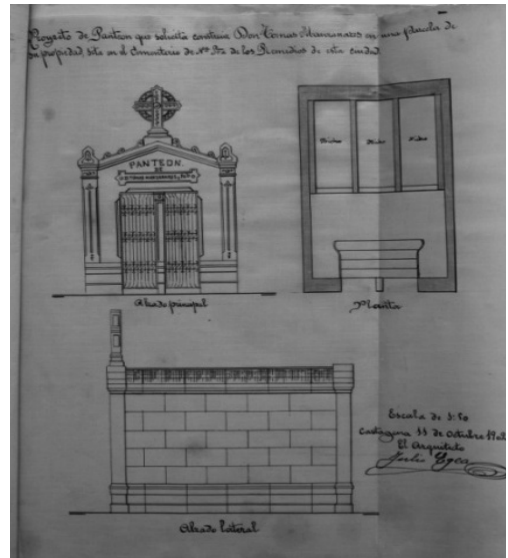 Proyecto de Panteon que solicita construir Don Tomas Manzanares en una parcela de
su propiedad, sita en el Cementerio de Nª Sra de los Remedios de esta ciudad.
PANTEON
DE
Nicho
Nicho
Nicho
Alzado principal
Planta
Escala de 1:50
Cartagena 11 de Octubre
El Arquitecto
Alzado lateral